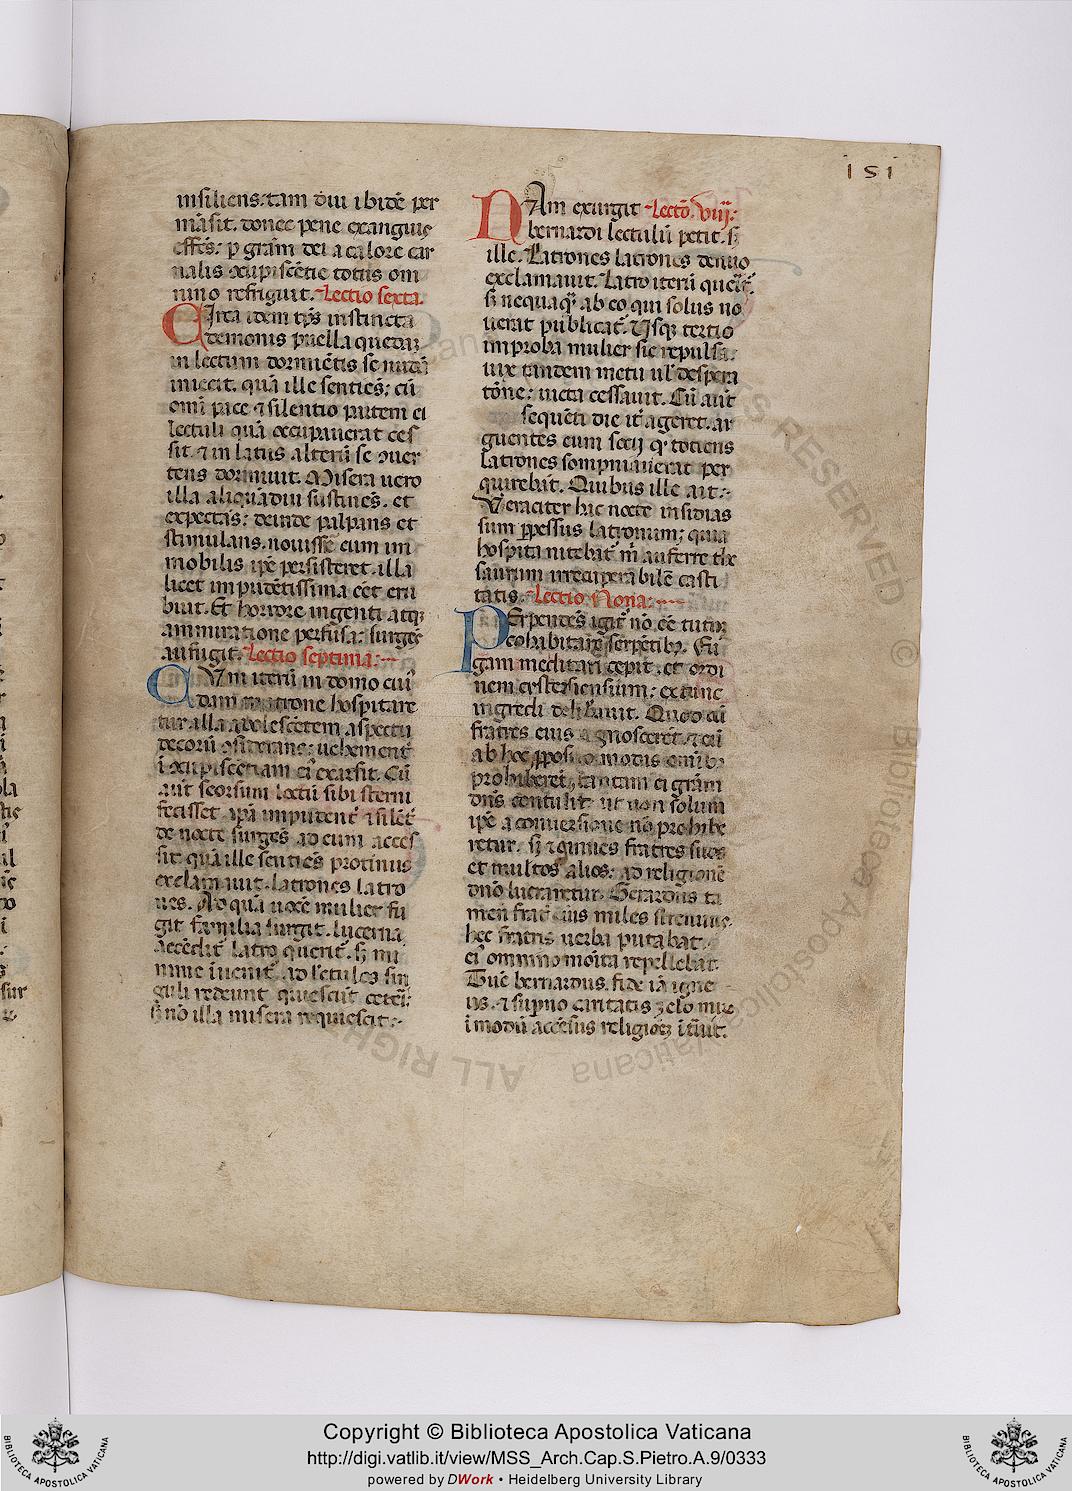 151
insiliens: tam diu ibidē per
māsit. donec pene exanguis
effect̄s: p̱ grām dei a calore car
nalis ɔcupiscētie totus om
nino refriguit. Lectio sexta.
Circa idem tp̄s instinctu
demonis puella quedam
in lectum dormiētis se nudā
iniecit. quā ille sentiēs; cū
omī pace ⁊ silentio partem ei
lectuli quā occupauerat ces
sit. ⁊ in latus alterū se ɔuer
tens dormiuit. Misera uero
illa aliquādiu sustinēs. et
expectās: deinde palpans et
stimulans. nouisse eum im
mobilis ip̄e persisteret. illa
licet impudētissima eēt eru
buit. Et horrore ingenti atq3
ammiratione perfusa: surgēs
aufugit. Lectio septima:
Cum iterū in domo cuiꝰ
dam matrone hospitare
tur. illa adolescētem aspectu
decorū ɔsiderans: uehement̄
ī ɔcupiscētiam eiꝰ exarsit. Cū
aūt seorsum lectū sibi sterni
fecisset ip̄a impudent̄ ⁊ silēt̄
de nocte surgēs ad eum acces
sit quā ille sentiēs protinus
exclamauit. latrones latro
nes. Ad quā uocē mulier fu
git familia surgit. lucerna
accēdit̄ latro querit̄. s3 mi
nime īuenit̄. ad lētulos sin
guli redeunt quiescūt ceteri:
s3 nō illa misera requiescit:
Nam exurgit Lectō. viij:
bernardi lectulū petit. s3
ille. Latrones latrones denuo
exclamauit. Latro iterū querit̄.
s3 nequaq̄3 ab eo qui solus no
uerat publicat̄. Usq3 tertio
improba mulier sic repulsa:
uix tandem metu ul̄ despera
tōne: uicta cessauit. Cū aūt
sequēti die it̄ ageret. ar
guentes eum socij q̄ totiens
latrones sompniauerat per
quirebāt. Quibus ille ait:
Veraciter hac nocte insidias
sum ꝑpessus latronum; quia
hospita nitebat̄ m̄ auferre the
saurum irrecuperabilē casti
tatis. Lectio Nona:
Perpendēs igit̄ nō eē tutū
cohabitare serpētib3. Fu
gam meditari cepit. et ordi
nem cystersiensium: extunc
ingredi delibauit. Quod cū
fratres eius agnoscerēt. ⁊ eū
ab hoc ꝓposito modis omīb3
prohiberēt, tantam ei grām
dn̄s contulit ut non solum
ip̄e a conuersione nō prohibe
retur. s3 ⁊ quinꝗs fratres suos
et multos alios: ad religionē
dn̄o lucraretur. Gerardus ta
men frat̄ eius miles strenuus.
hec fratris uerba putabat.
eiꝰ omnino monita repellebat.
Tūc bernardus. fide iā igne
us. ⁊ fr̄no caritatis zelo miro
ī modū accēsus religiōe3 ītūit.
Copyright © Biblioteca Apostolica Vaticana
http://digi.vatlib.it/view/MSS_Arch.Cap.S.Pietro.A.9/0333
powered by DWork • Heidelberg University Library